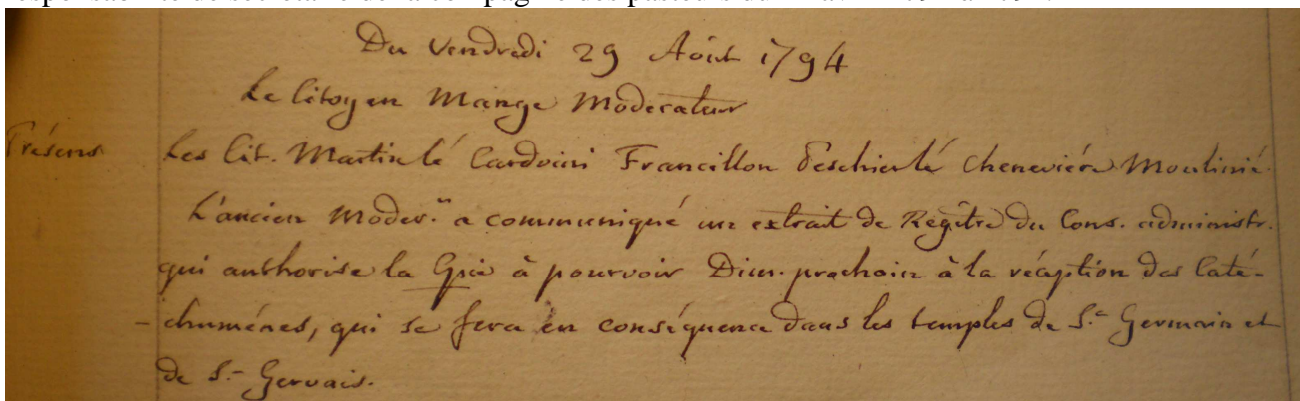 Du Vendredi 29 Aôut 1794
Le Citoyen Mange Moderateur
Présens Les Cit. Martin lé Cardoini Francillon Peschier lé Cheneviére Moulinié
L'ancien Moder.ʳ a communiqué un extrait de Regître du Cons. administr.
qui authorise la Cpie à pourvoir Dim. prochain à la réception des Caté-
-chuménes, qui se fera en conséquence dans les temples de S.ᵗ Germain et
de S.ᵗ Gervais.